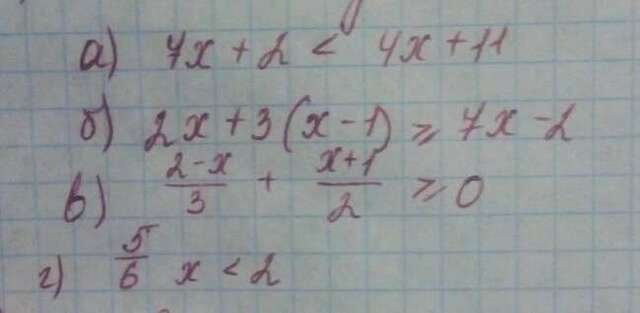 а) 7x + 2 < 4x + 11
б) 2x + 3(x - 1) ≥ 7x - 2
в) (2-x)/3 + (x+1)/2 ≥ 0
г) 5/6 x < 2